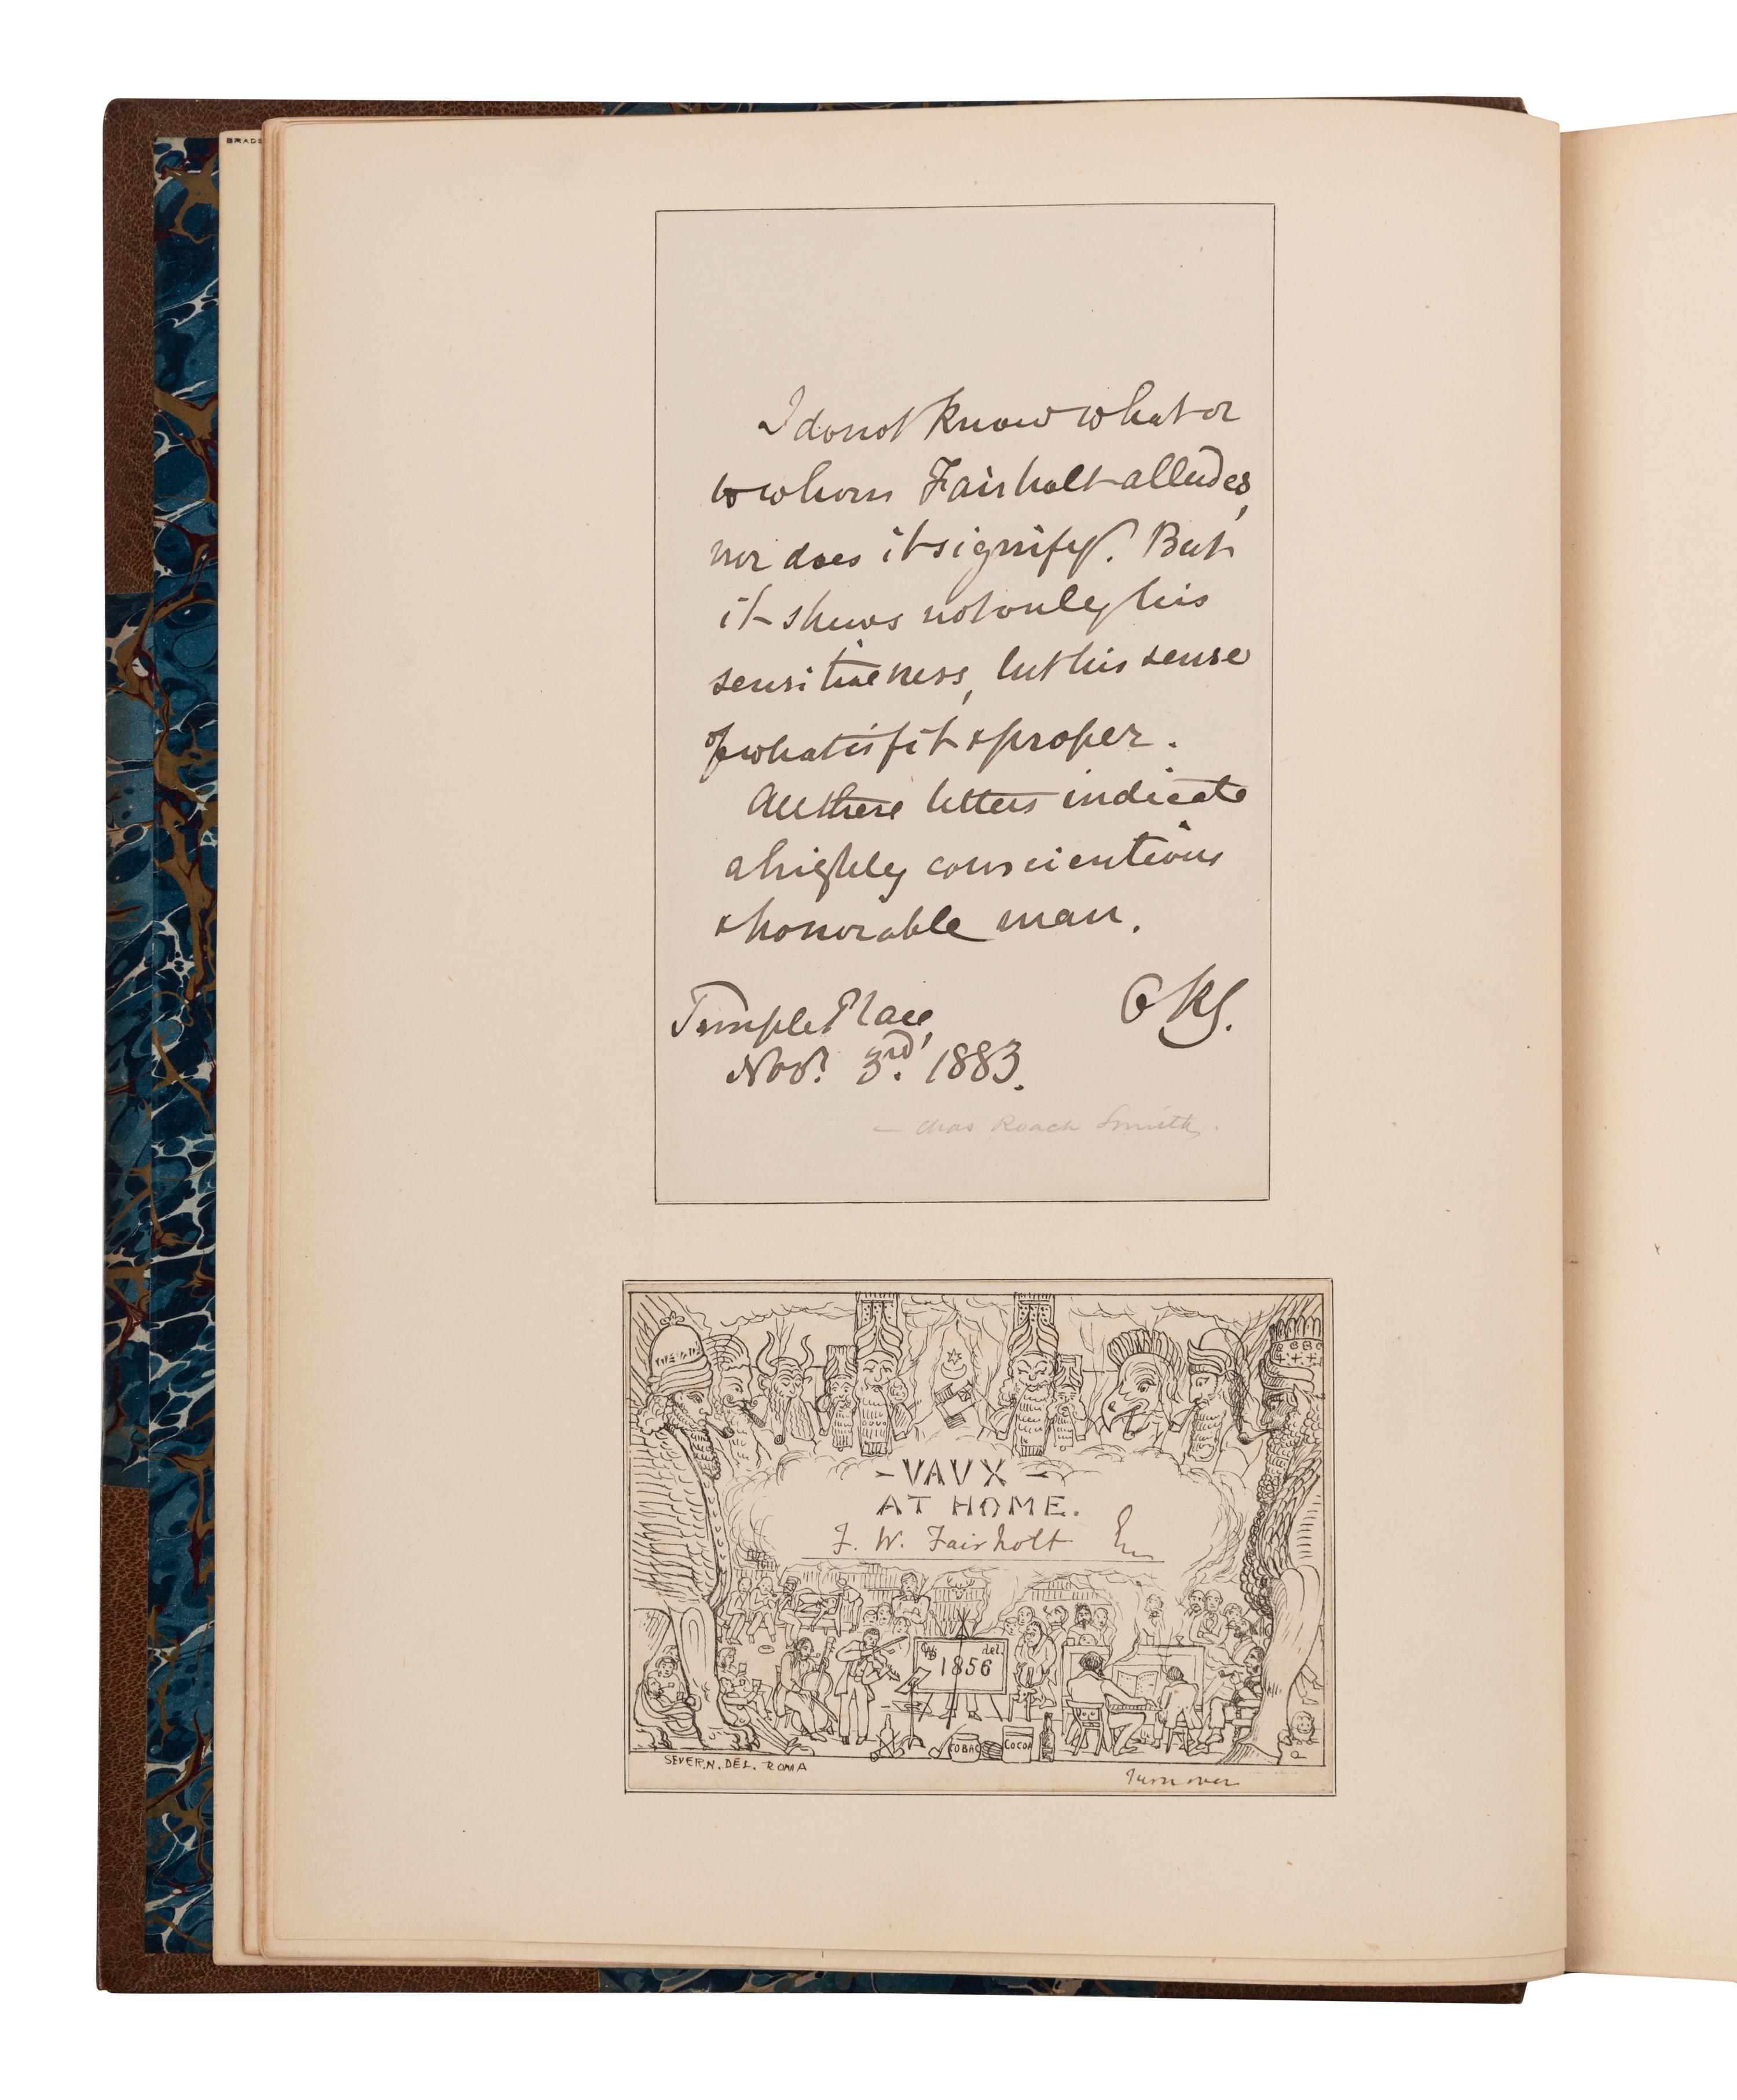 BRADS
I do not know what or
to whom Fairholt alludes,
nor does it signify. But
it shews not only his
sensitiveness, but his sense
of what is fit & proper.
All these letters indicate
a highly conscientious
& honorable man.
Temple Place, C R S.
Novr. 3rd, 1883.
— Chas Roach Smith.
- VAUX -
AT HOME.
F. W. Fairholt Esq
del.
1856
TOBAC COCOA
SEVERN. DEL. ROMA
Turn over